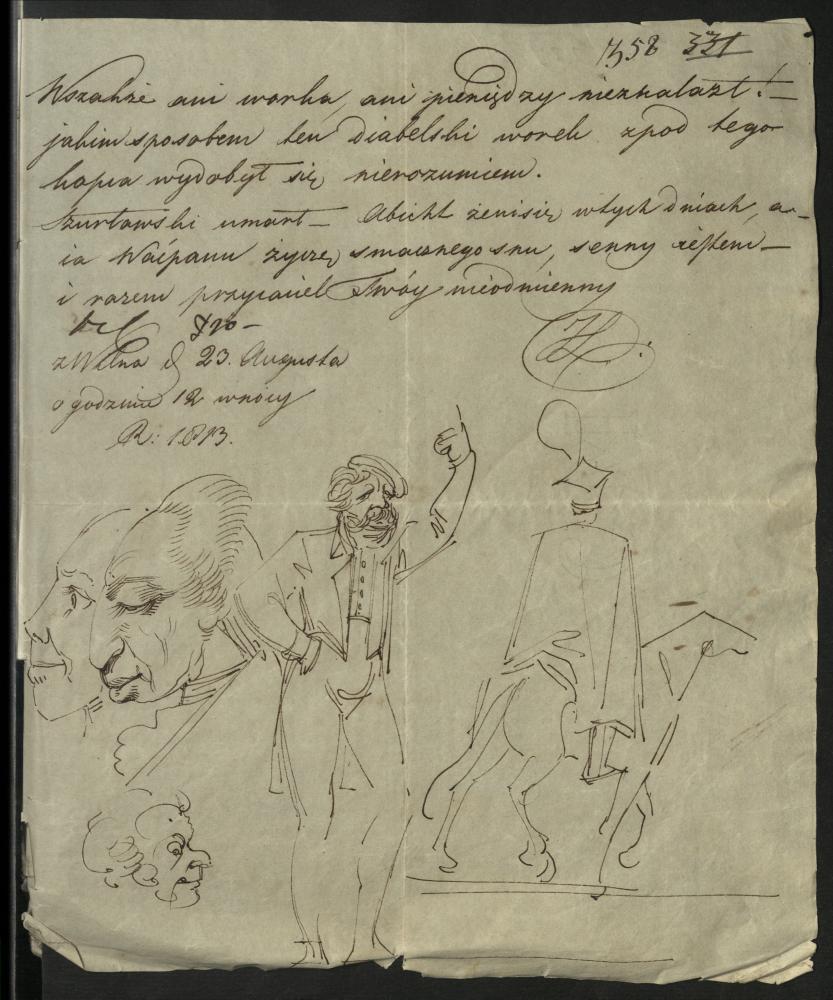 358 331
Wszakże ani worka, ani pieniędzy nieznalazł! –
jakim sposobem ten diabelski worek zpod tego
kąpia wydobył się nierozumiem.
umarł – Abicht żenisię wtych dniach, a –
ia Waćpanu życzę smacznego snu, senny iestem –
i razem przyiaciel Twóy nieodmienny
z Wilna d 23. Augusta
o godzinie 12 wnócy
R: 1813.